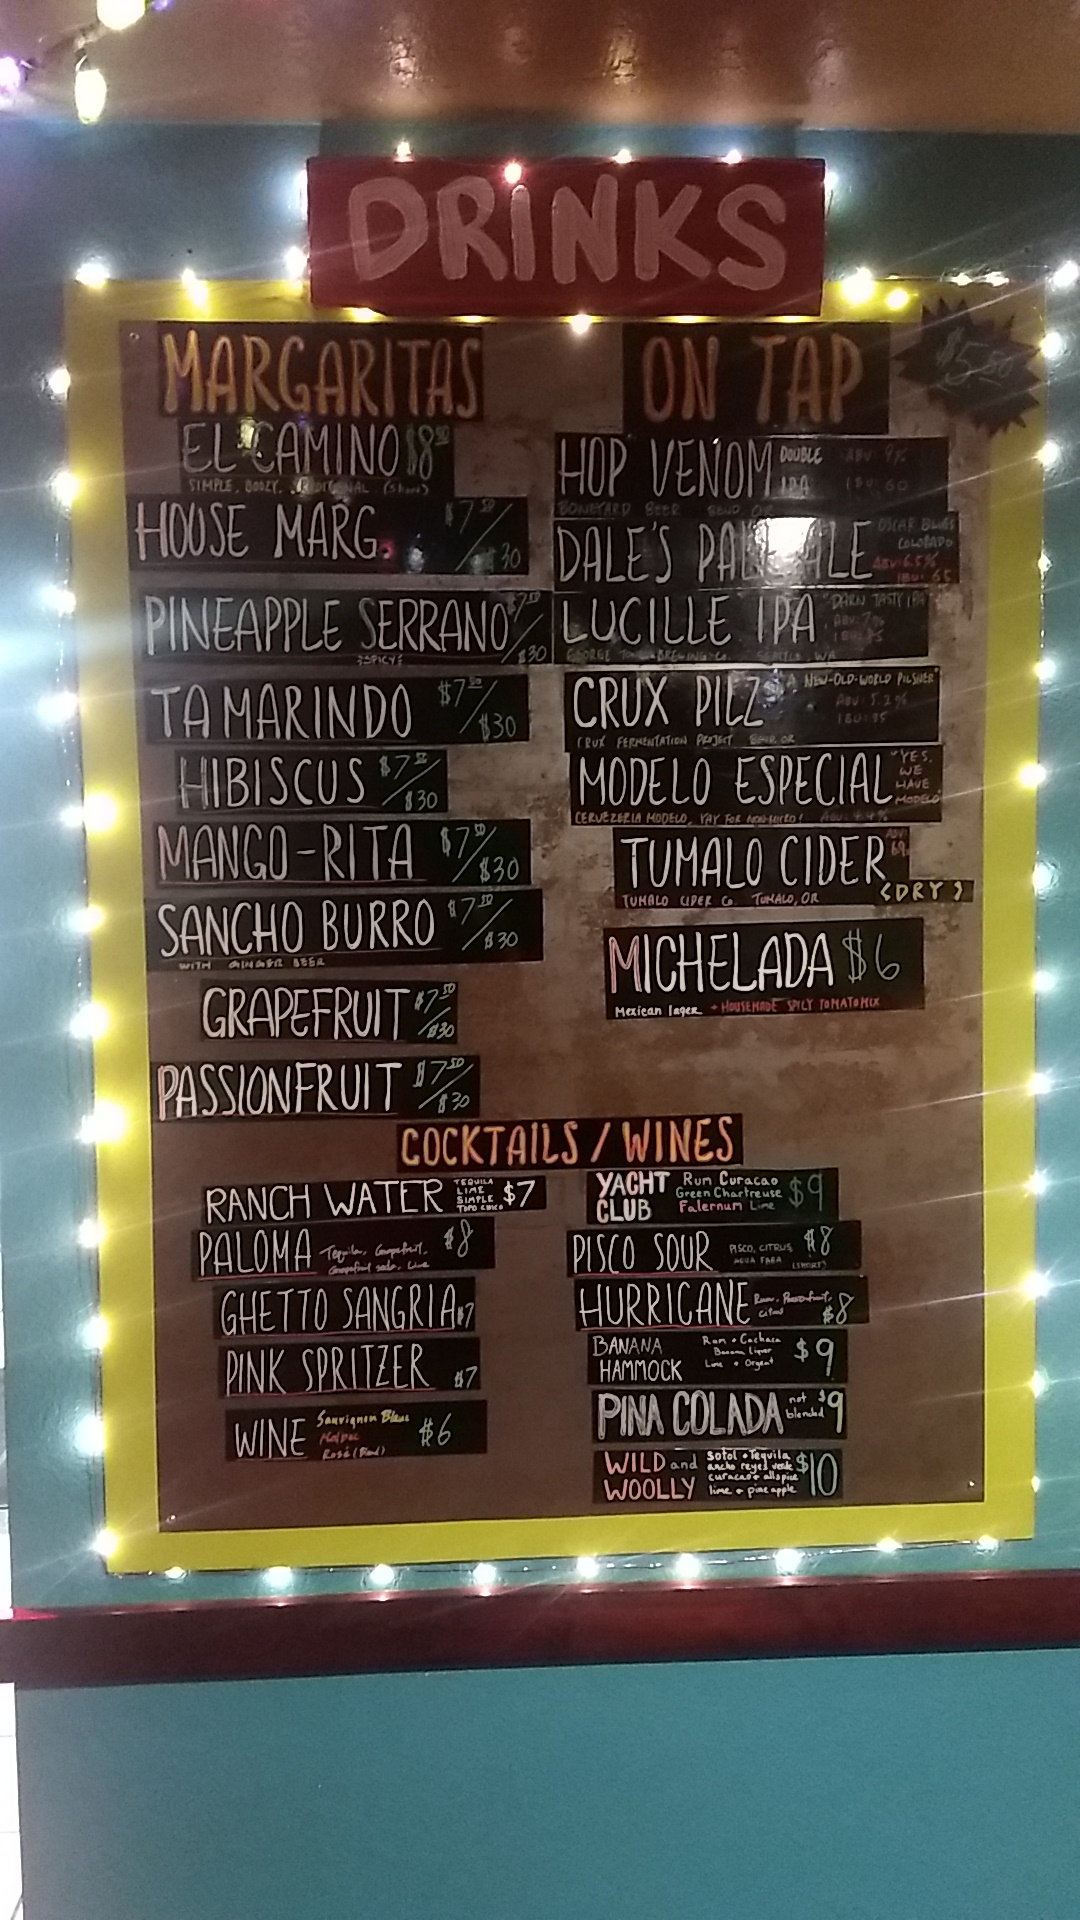 DRiNKS
MARGARITAS
EL CAMINO $8
SIMPLE, BOOZY, (Short)
HOUSE MARG. $7.50/$30
PINEAPPLE SERRANO $7.50/$30
SPICY
TAMARINDO $7.50/$30
HIBISCUS $7.50/$30
MANGO-RITA $7.50/$30
SANCHO BURRO $7.50/$30
WITH GINGER BEER
GRAPEFRUIT $7.50/$30
PASSIONFRUIT $7.50/$30
ON TAP
$5.50
HOP VENOM DOUBLE IPA ABV: 9%
BONEYARD BEER BEND, OR
DALE'S PALE ALE OSCAR BLUES
COLORADO
ABV: 6.5%
IBU: 65
LUCILLE IPA "DARN TASTY IPA"
ABV: 7%
SEATTLE, WA
CRUX PILZ A NEW-OLD-WORLD PILSNER
ABV: 5.2%
CRUX FERMENTATION PROJECT
MODELO ESPECIAL "YES,
WE
HAVE
MODELO"
CERVEZERIA MODELO,
TUMALO CIDER ABV:
TUMALO CIDER Co. TUMALO, OR
(DRY)
MICHELADA $6
Mexican lager + HOUSEMADE SPICY TOMATO MIX
COCKTAILS / WINES
RANCH WATER TEQUILA
LIME
SIMPLE
TOPO CHICO $7
PALOMA Tequila, Grapefruit,
Grapefruit soda, Lime $8
GHETTO SANGRIA $7
PINK SPRITZER $7
WINE Sauvignon Blanc
Malbec
Rosé (Blend) $6
YACHT CLUB Rum Curacao
Green Chartreuse
Falernum Lime $9
PISCO SOUR PISCO, CITRUS,
AQUA FABA (SHORT) $8
HURRICANE Rum, Passionfruit,
citrus $8
BANANA HAMMOCK Rum + Cachaca
Banana Liquor
Lime + Orgeat $9
PINA COLADA not blended $9
WILD and WOOLLY Sotol + Tequila
ancho reyes verde
curacao + allspice
lime + pineapple $10